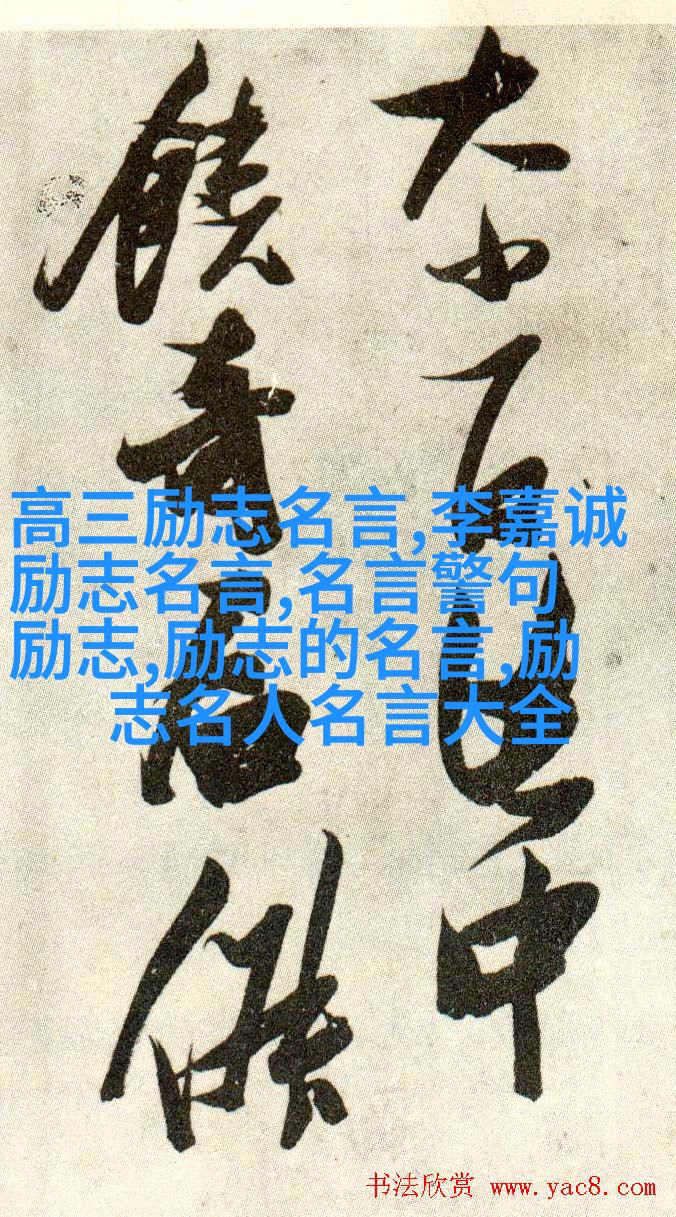 大小百中
饒奇
高三励志名言,李嘉诚
励志名言,名言警句
励志,励志的名言,励
志名人名言大全
书法欣赏 www.yac8.com